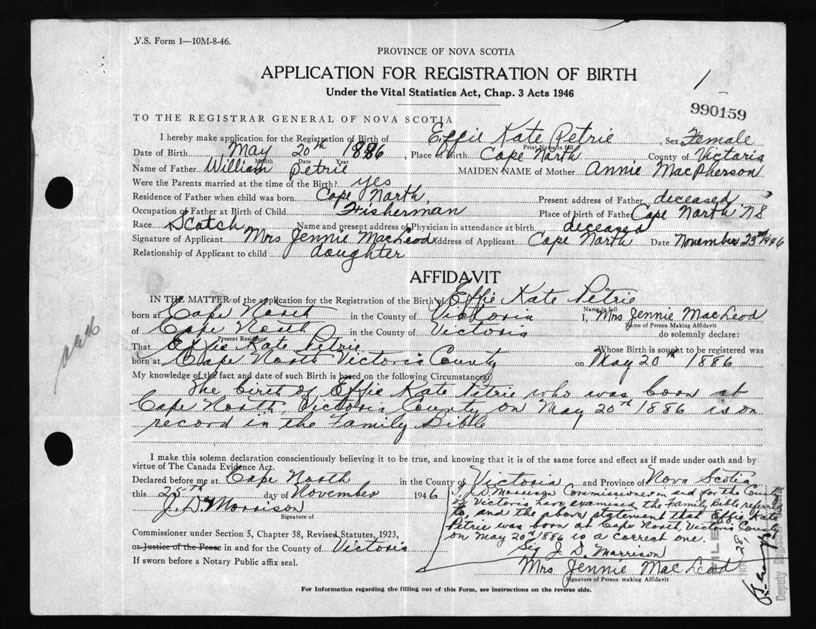 V.S. Form 1—10M-8-46.
PROVINCE OF NOVA SCOTIA
APPLICATION FOR REGISTRATION OF BIRTH
Under the Vital Statistics Act, Chap. 3 Acts 1946
1
990159
TO THE REGISTRAR GENERAL OF NOVA SCOTIA
I hereby make application for the Registration of Birth of Effie Kate Petrie Sex Female
Print Name in full
Date of Birth May 20th 1886, Place of Birth Cape North County of Victoria
Month Date Year
Name of Father William Petrie MAIDEN NAME of Mother Annie MacPherson
Were the Parents married at the time of the Birth? yes
Residence of Father when child was born Cape North, Present address of Father deceased
Occupation of Father at Birth of Child Fisherman Place of birth of Father Cape North NS
Race Scotch Name and present address of Physician in attendance at birth deceased
Signature of Applicant Mrs Jennie MacLeod Address of Applicant Cape North Date November 25th 1946
Relationship of Applicant to child daughter
AFFIDAVIT
IN THE MATTER of the application for the Registration of the Birth of Effie Kate Petrie
Name in full
born at Cape North in the County of Victoria I, Mrs Jennie MacLeod
Name of Person Making Affidavit
of Cape North in the County of Victoria do solemnly declare:
Present Residence
That Effie Kate Petrie Whose Birth is sought to be registered was
born at Cape North Victoria County on May 20th 1886
My knowledge of the fact and date of such Birth is based on the following Circumstances:
The birth of Effie Kate Petrie who was born at
Cape North, Victoria County on May 20th 1886 is on
record in the Family Bible
I make this solemn declaration conscientiously believing it to be true, and knowing that it is of the same force and effect as if made under oath and by
virtue of The Canada Evidence Act.
Declared before me at Cape North in the County of Victoria and Province of Nova Scotia
this 25th day of November 1946
J. D. Morrison
Signature of
I, J. D. Morrison Commissioner in and for the County
of Victoria have examined the Family Bible referred
to, and the above statement that Effie Kate
Petrie was born at Cape North, Victoria County
on May 20th 1886 is a correct one.
Sig J. D. Morrison
Commissioner under Section 5, Chapter 38, Revised Statutes, 1923,
or Justice of the Peace in and for the County of Victoria
If sworn before a Notary Public affix seal.
Mrs Jennie MacLeod
Signature of Person making Affidavit
For Information regarding the filling out of this Form, see instructions on the reverse side.
FILED